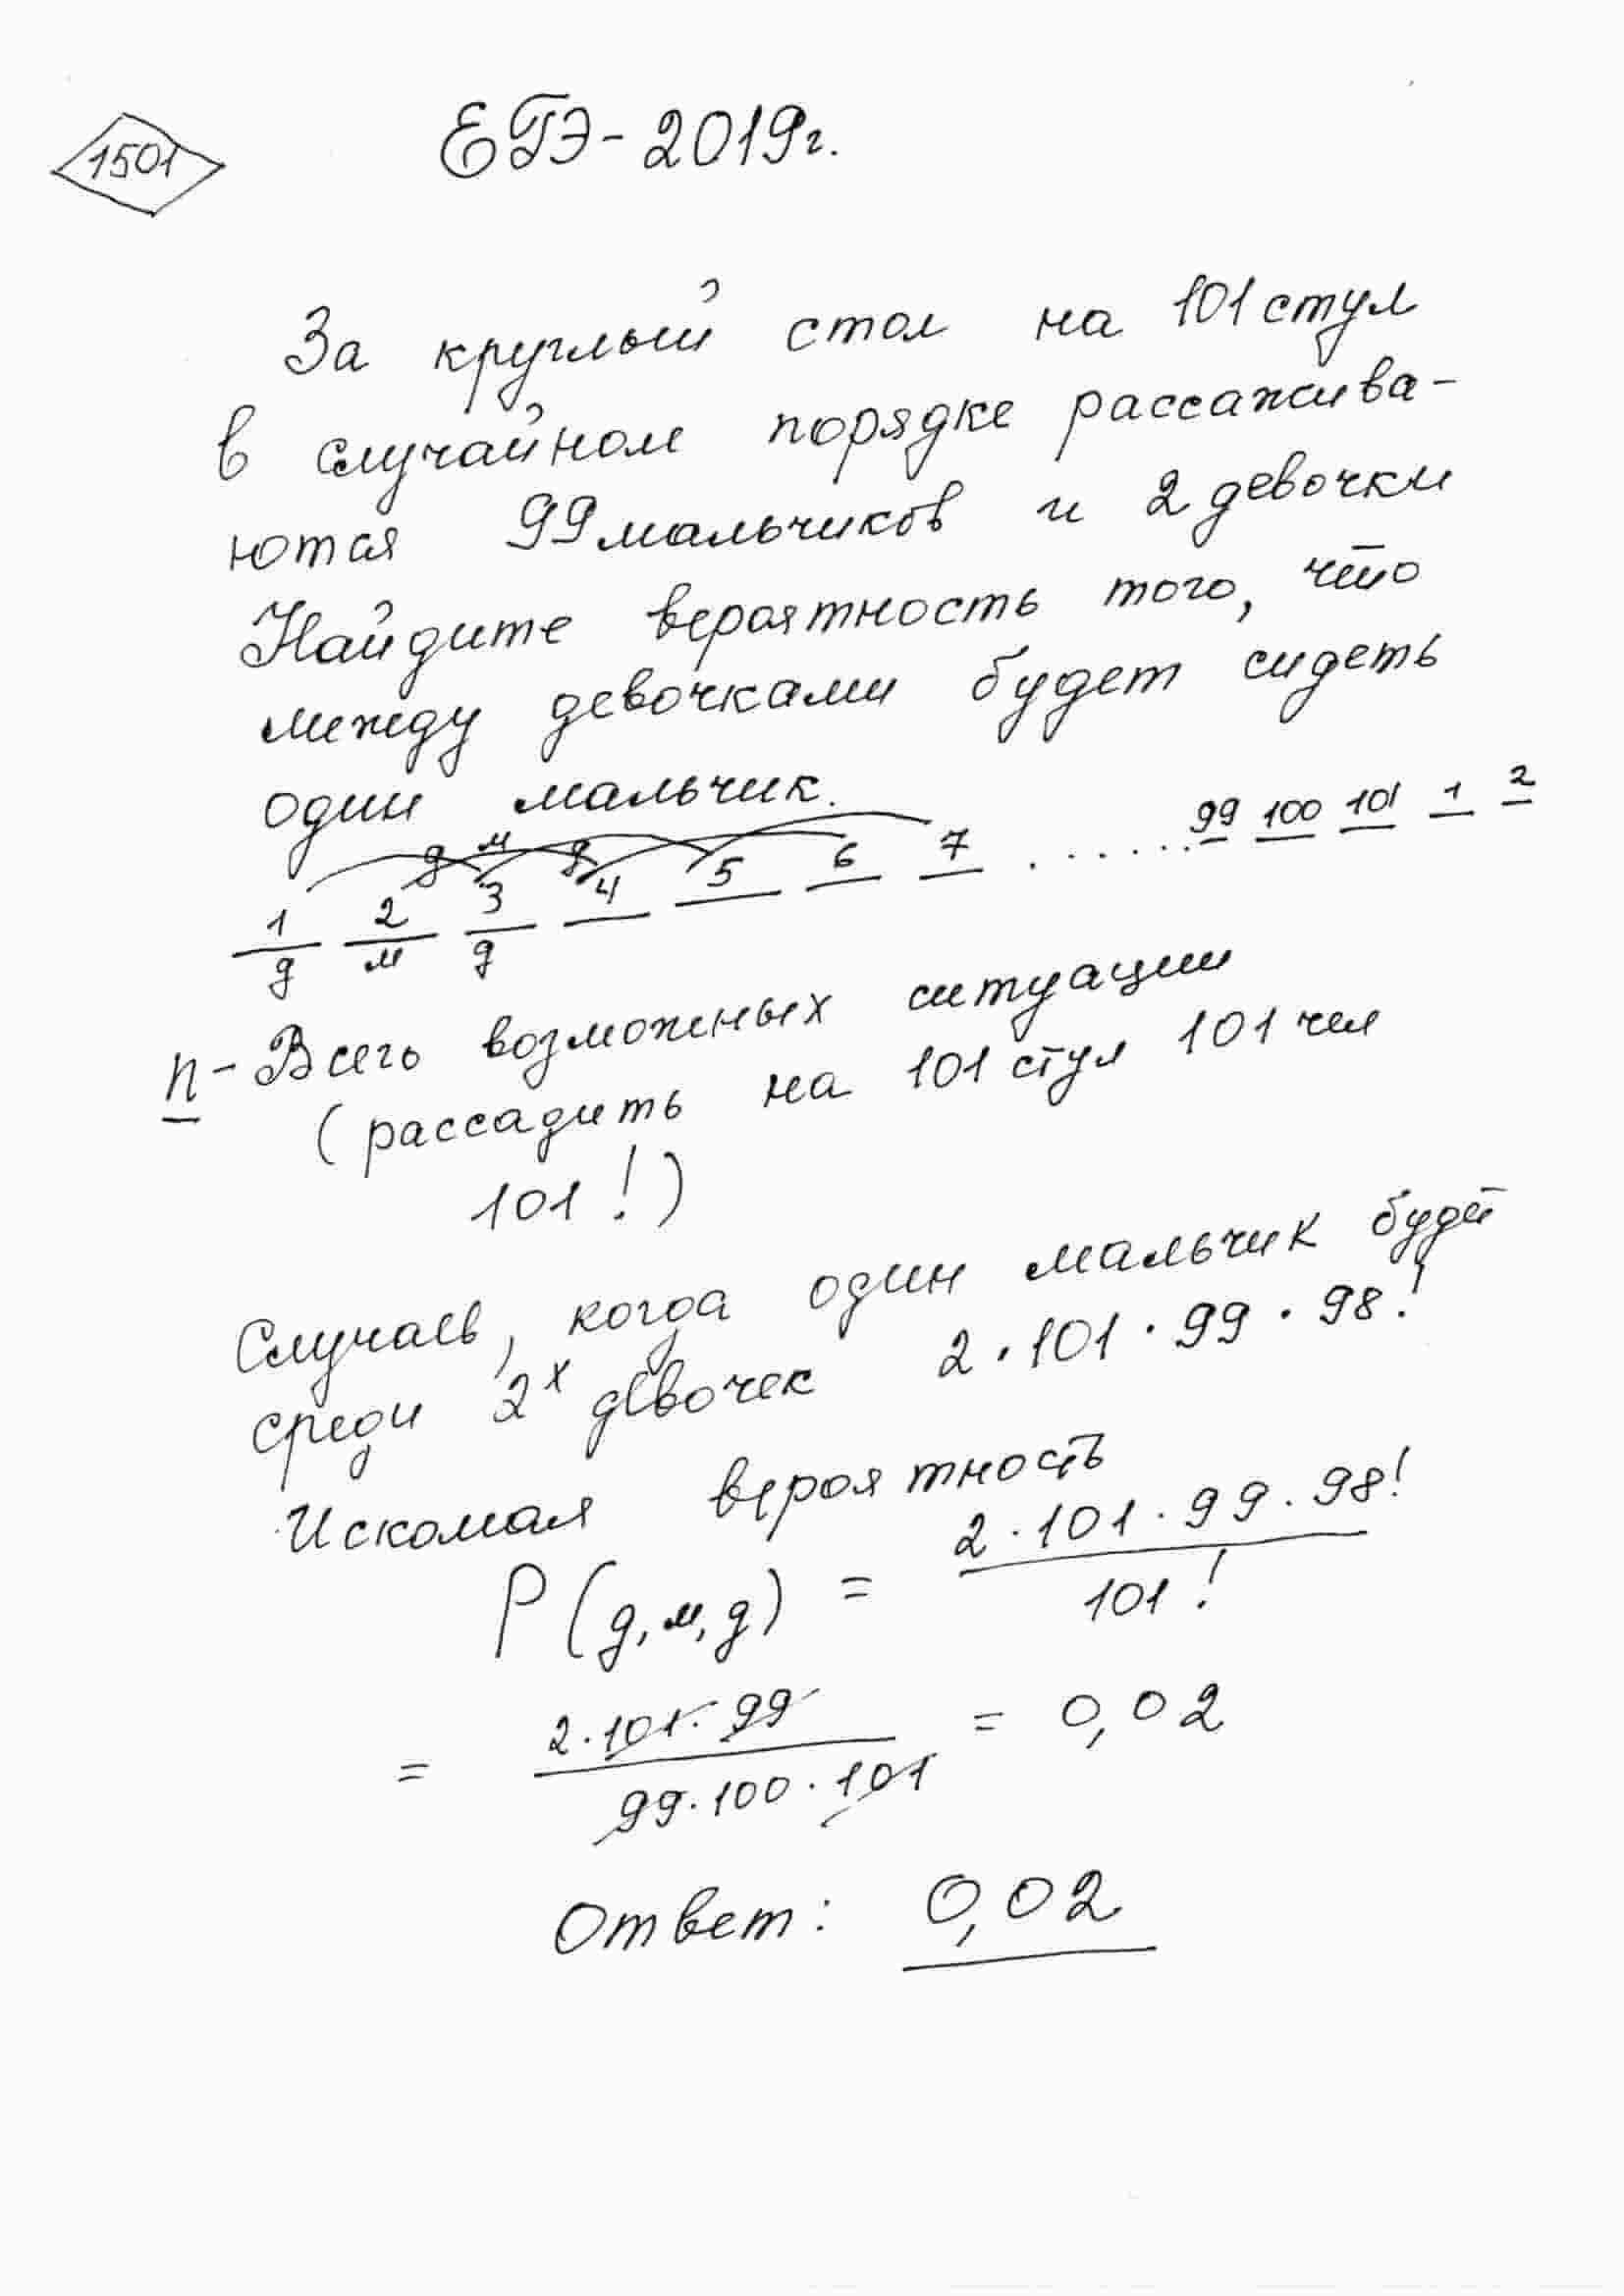 1501
ЕГЭ-2019г.
За круглый стол на 101 стул
в случайном порядке рассажива-
ются 99 мальчиков и 2 девочки
Найдите вероятность того, что
между девочками будет сидеть
один мальчик.
д м д
1 2 3 4 5 6 7 ....... 99 100 101 1 2
д м д
n - Всего возможных ситуации
(рассадить на 101 стул 101 чел
101!)
Случаев, когда один мальчик будет
среди 2х девочек 2·101·99·98!
Искомая вероятность
P(д,м,д) = 2·101·99·98!
101!
= 2·101·99 = 0,02
99·100·101
Ответ: 0,02